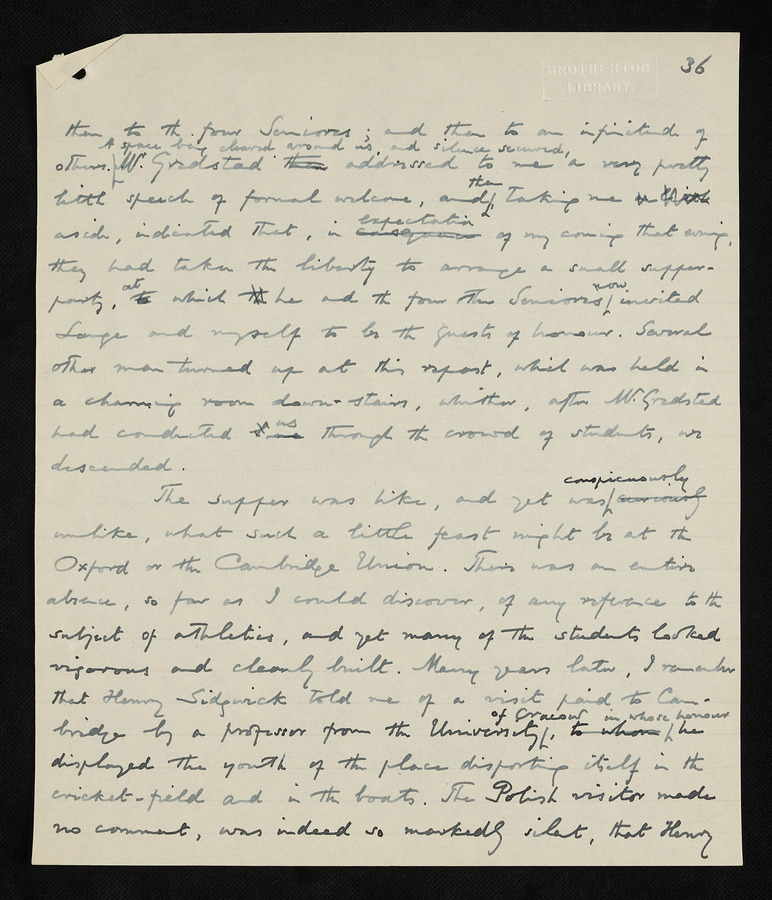 36
BROTHERTON
LIBRARY.
then to the four Seniores; and then to an infinitude of
A space being cleared around us, and silence secured,
others. Mr. Gredsted then addressed to me a very pretty
then
little speech of formal welcome, and, taking me
expectation
aside, indicated that, in consequence of my coming that evening,
they had taken the liberty to arrange a small supper-
at now
party, to which he and the four other Seniores invited
Lange and myself to be the guests of honour. Several
other men turned up at this repast, which was held in
a charming room down-stairs, whither, after Mr. Gredsted
us
had conducted me through the crowd of students, we
descended.
conspicuously
The supper was like, and yet was curiously
unlike, what such a little feast might be at the
Oxford or the Cambridge Union. There was an entire
absence, so far as I could discover, of any reference to the
subject of athletics, and yet many of the students looked
vigorous and cleanly built. Many years later, I remember
that Henry Sidgwick told me of a visit paid to Cam-
of Cracow in whose honour
bridge by a professor from the University, to whom he
displayed the youth of the place disporting itself in the
cricket-field and in the boats. The Polish visitor made
no comment, was indeed so markedly silent, that Henry